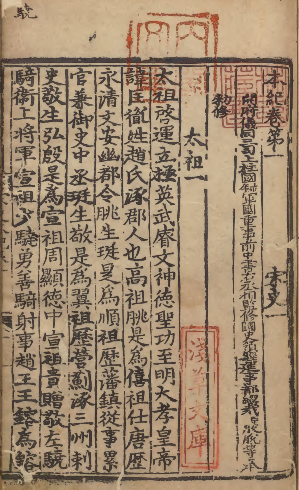 本紀卷第一 宋史一
開府儀同三司上柱國錄軍國重事前中書右丞相監修國史領經筵事都總裁臣脫脫等奉
勑修
太祖一
太祖啓運立極英武睿文神德聖功至明大孝皇帝
諱匡胤姓趙氏涿郡人也高祖朓是爲僖祖仕唐歷
永清文安幽都令朓生珽是爲順祖歷藩鎮從事累
官兼御史中丞珽生敬是爲翼祖歷營薊涿三州刺
史敬生弘殷是爲宣祖周顯德中宣祖貴贈敬左驍
騎衛上將軍宣祖少驍勇善騎射事趙王王鎔爲鎔
淺草文庫